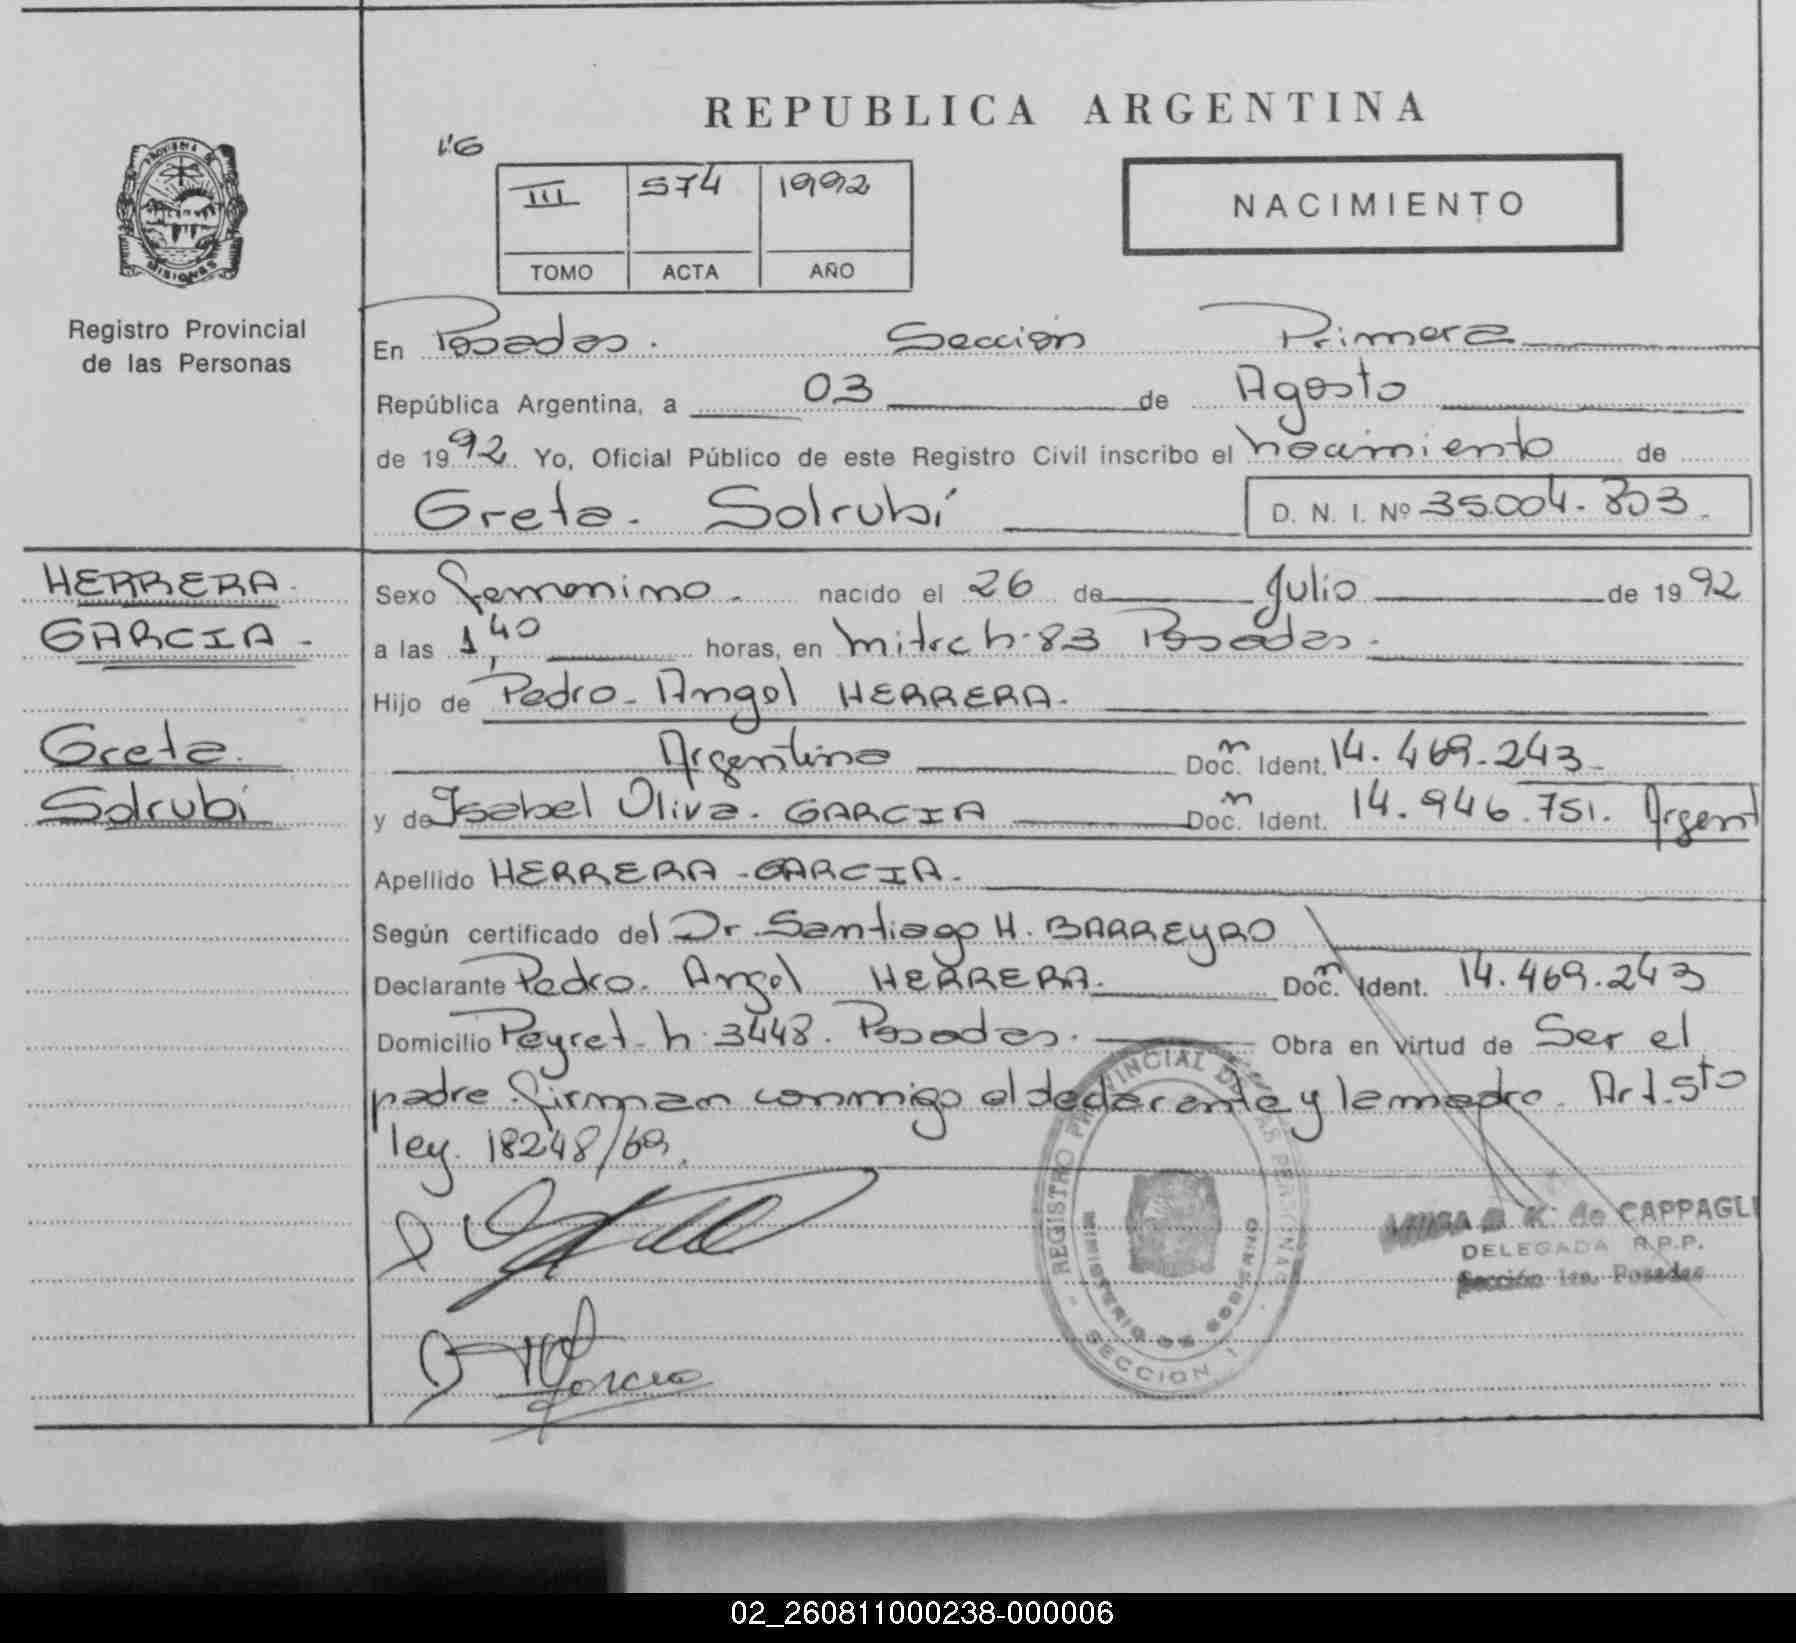 REPUBLICA ARGENTINA
PROVINCIA DE
MISIONES
Registro Provincial
de las Personas
III 574 1992
TOMO ACTA AÑO
NACIMIENTO
En Posadas. Sección Primera
República Argentina, a 03 de Agosto
de 1992. Yo, Oficial Público de este Registro Civil inscribo el nacimiento de
Greta. Solrubí D. N. I. Nº 35.004.803.
HERRERA.
GARCIA.
Greta.
Solrubí
Sexo femenino. nacido el 26 de Julio de 1992
a las 1,40 horas, en mitre h. 83 Posadas.
Hijo de Pedro. Angel HERRERA.
Argentino Doc. Ident. 14.469.243
y de Isabel Oliva. GARCIA Doc. Ident. 14.946.751. Argent
Apellido HERRERA - GARCIA.
Según certificado del Dr. Santiago H. BARREYRO
Declarante Pedro. Angel HERRERA. Doc. Ident. 14.469.243
Domicilio Peyret h. 3448. Posadas. Obra en virtud de Ser el
padre firman conmigo el declarante y la madre. Art. 5to
ley. 18248/69.
REGISTRO PROVINCIAL DE LAS PERSONAS
MINISTERIO DE GOBIERNO
SECCION 1
de CAPPAGLI
DELEGADA R.P.P.
Sección 1ra. Posadas
Garcia
02_260811000238-000006